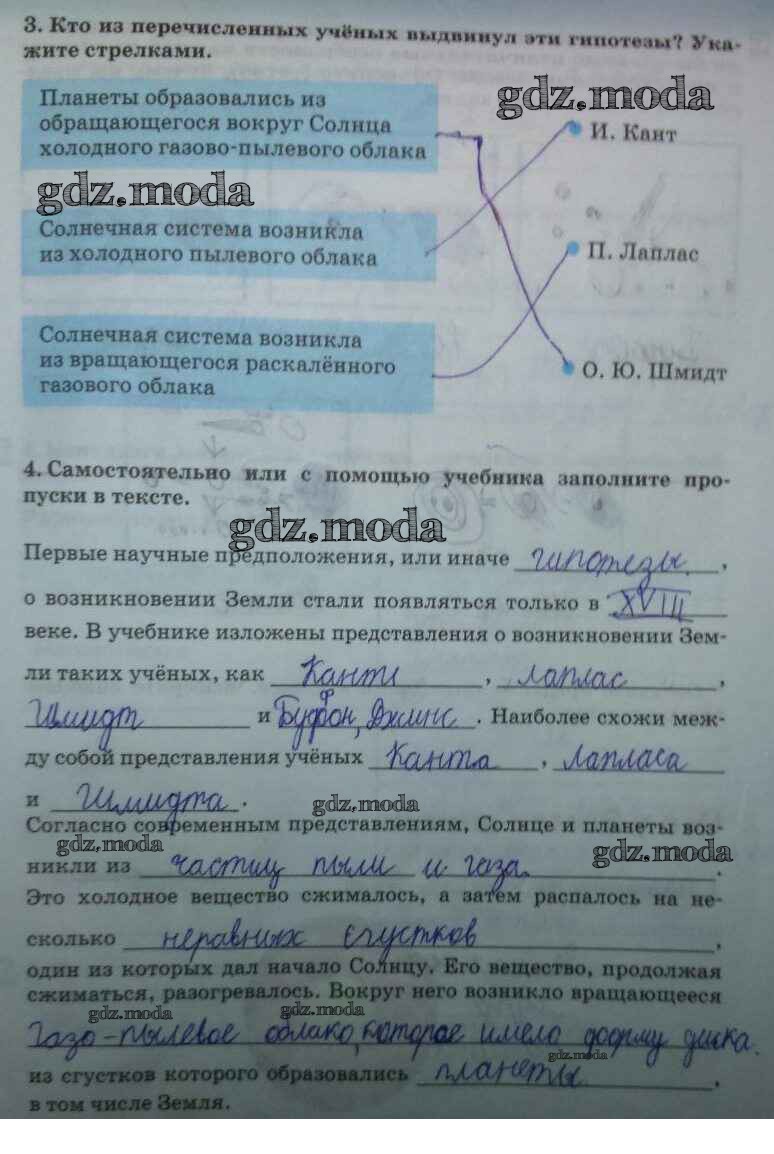 3. Кто из перечисленных учёных выдвинул эти гипотезы? Ука-
жите стрелками.
Планеты образовались из
обращающегося вокруг Солнца
холодного газово-пылевого облака
gdz.moda
И. Кант
gdz.moda
Солнечная система возникла
из холодного пылевого облака
П. Лаплас
Солнечная система возникла
из вращающегося раскалённого
газового облака
О. Ю. Шмидт
4. Самостоятельно или с помощью учебника заполните про-
пуски в тексте.
gdz.moda
Первые научные предположения, или иначе гипотезы,
о возникновении Земли стали появляться только в XVIII
веке. В учебнике изложены представления о возникновении Зем-
ли таких учёных, как Кант, лаплас,
Шмидт и Бюффон, Джинс. Наиболее схожи меж-
ду собой представления учёных Канта, лапласа
и Шмидта.
gdz.moda
Согласно современным представлениям, Солнце и планеты воз-
gdz.moda
никли из частиц пыли и газа.
gdz.moda
Это холодное вещество сжималось, а затем распалось на не-
сколько неравных сгустков,
один из которых дал начало Солнцу. Его вещество, продолжая
сжиматься, разогревалось. Вокруг него возникло вращающееся
gdz.moda gdz.moda
Газо-пылевое облако, которое имело форму диска.
gdz.moda
из сгустков которого образовались планеты,
в том числе Земля.